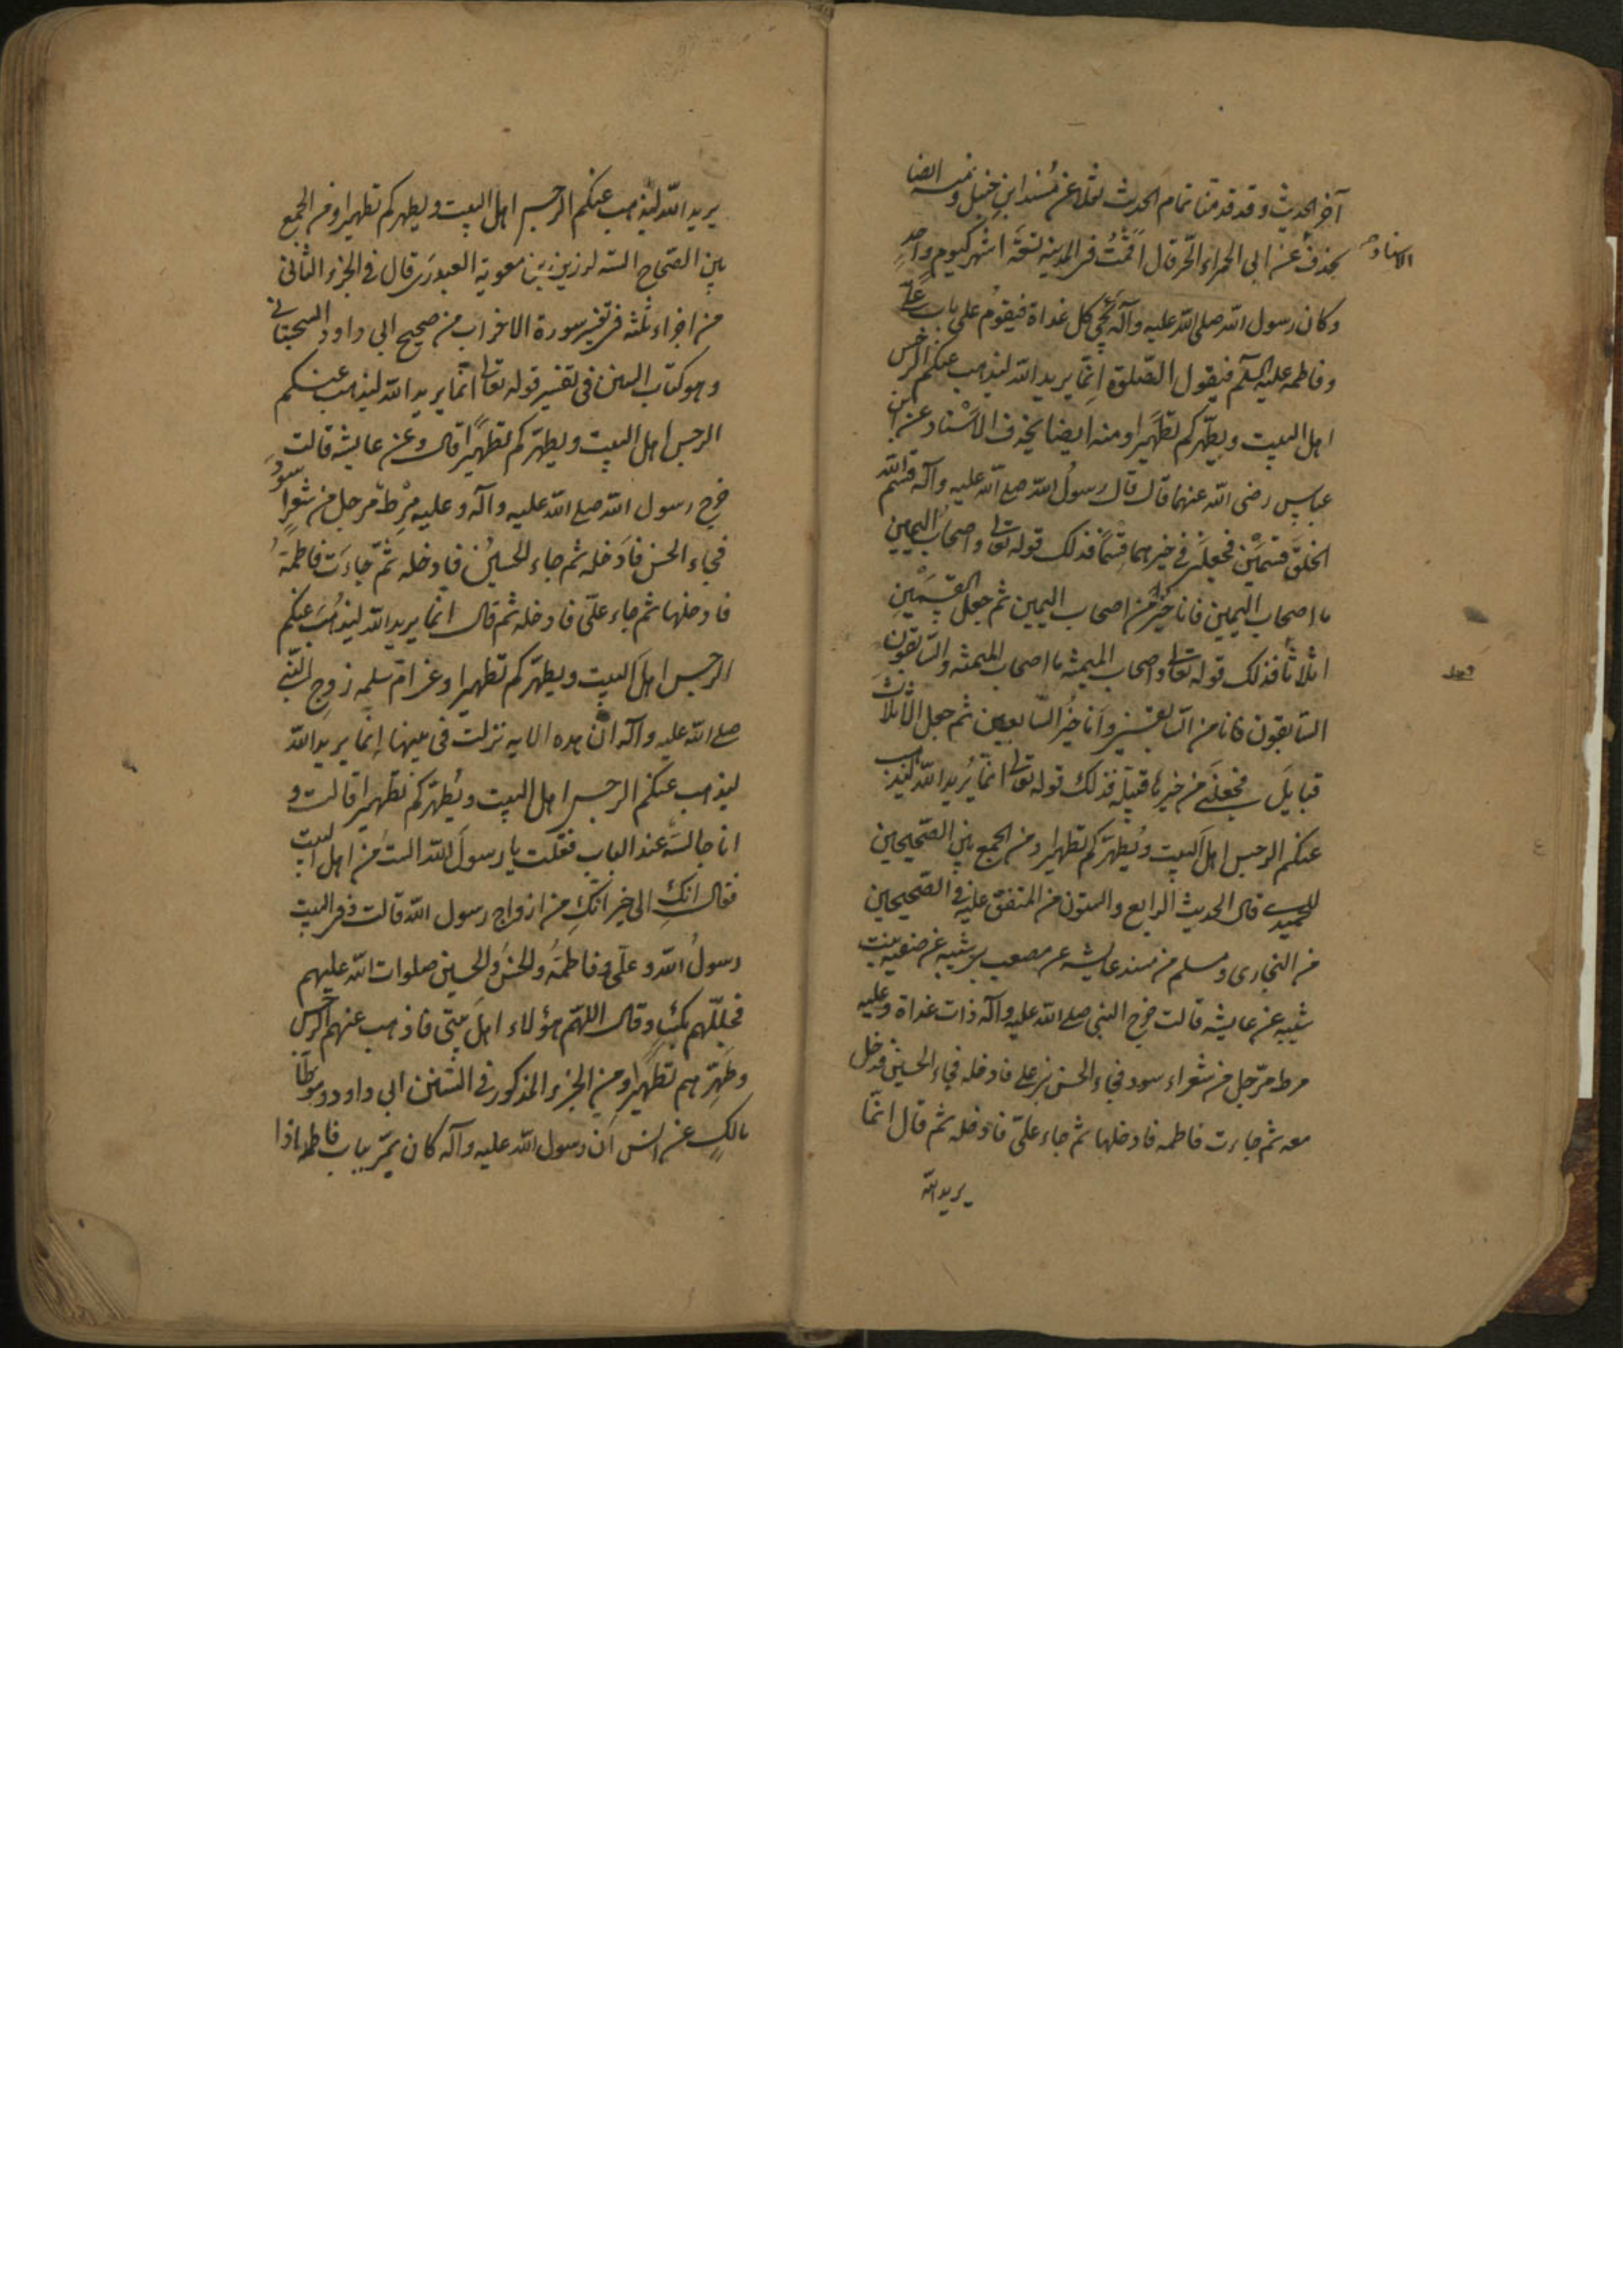 آخر الحديث وقد قدمنا تمام الحديث نقلا عن مُسند ابن حنبل ومنه ايضا
بحذف عن ابى الحمراء الخر قال اقمتُ فى المدينه تسعَة اشهر كيوم واحدٍ
الاسناد صح
وكان رسول الله صلى الله عليه وآله يجئ كل غداة فيقومُ على باب علىّ
وفاطمه عليه السلم فيقول الصّلوة اِنّما يريد الله ليذهب عنكم الرجس
اهل البيت ويطهّركم تطهَيرا ومنه ايضا بحذف الاسْناد عن ابن
عباس رضى الله عنهما قال قال رسولُ الله صلع الله عليه وآله قسم الله
الخلقَ قسَمَيْن فجعلَنى فى خيرهما قِسْمًا فذلك قوله تعا واصحابُ اليمين
ما اصحاب اليمين فانا خيرٌ من اصحاب اليمين ثم جعل القسمَيْنِ
اثلاثا فذلك قوله تعا واصحاب الميمنة ما اصحاب الميمنه والسّابقون
السّابقون فانا من السّابقين وانا خيرُ السّابقين ثم جعل الاثلاث
قبايَل فجعلَنى من خيرها قبيلَة فذلك قوله تعا انما يُريد الله ليذهب
عنكم الرجس اهلَ البيت ويُطهّركم تطهيرا ومن الجمع بين الصّحيحين
للحميدے قال الحديث الرابع والستون من المتفق عليه فى الصّحيحين
من البخارى ومسلم من مسند عايشه عن مصعب بن شيبه عن صفيه بنت
شيبه عن عايشه قالت خرج النبى صلع الله عليه وآله ذات غداة وعليه
مرط مرّجل من شعر اسود فجاء الحسن بن على فادخله فجاء الحسين فدخل
معه ثم جاءت فاطمه فادخلها ثم جاء علىّ فادخله ثم قال انمّا
يريد الله
يريد الله ليذهب عنكم الرجس اهل البيت ويطهركم تطهيرا ومن الجمع
بين الصّحاح السته لرزين بن معوية العبدَرى قال فى الجزء الثانى
من اجزاء ثلثه فى تفسير سورة الاحزاب من صحيح ابى داود السجستانى
وهو كتاب السنن فى تفسير قوله تعا انّما يريد الله ليذهب عنكم
الرجس اهل البيت ويطهّركم تطهيًرا قال وعن عايشه قالت
خرج رسول الله صلع الله عليه وآله وعليه مِرْط مرجل من شعرٍ اسود
فجاء الحسن فادَخله ثم جاء الحسينُ فادخله ثمّ جاءَت فاطمةُ
فادخلها ثم جاء علىّ فادخله ثم قال انما يريد الله ليذهُب عنكم
الرجس اهلَ البيت ويطهّركم تطهيرا وعن امّ سلمه زوج النّبى
صلع الله عليه وآله انّ هذه الايه نزلت فى بيتها انما يريد الله
ليذهب عنكم الرجس اهل البيت ويُطهّركم تطهيرا قالت و
انا جالسَة عند الباب فقلت يا رسولَ الله الستُ من اهل البيت
فقال انكِ الى خير انّكِ من ازواج رسول الله قالت وفى البيت
رسولُ الله وعلىّ وفاطمةُ والحسنُ والحسين صلوات الله عليهم
فجلّلهم بكساء وقال اللهّم هؤلاء اهل بيتى فاذهب عنهم الرجس
وطَهِّرهم تطهيرا ومن الجزء المذكور فى السّنن ابى داود وموطّا
مالكٍ عن انس اَن رسول الله عليه وآله كان يمّر بباب فاطمه اذا